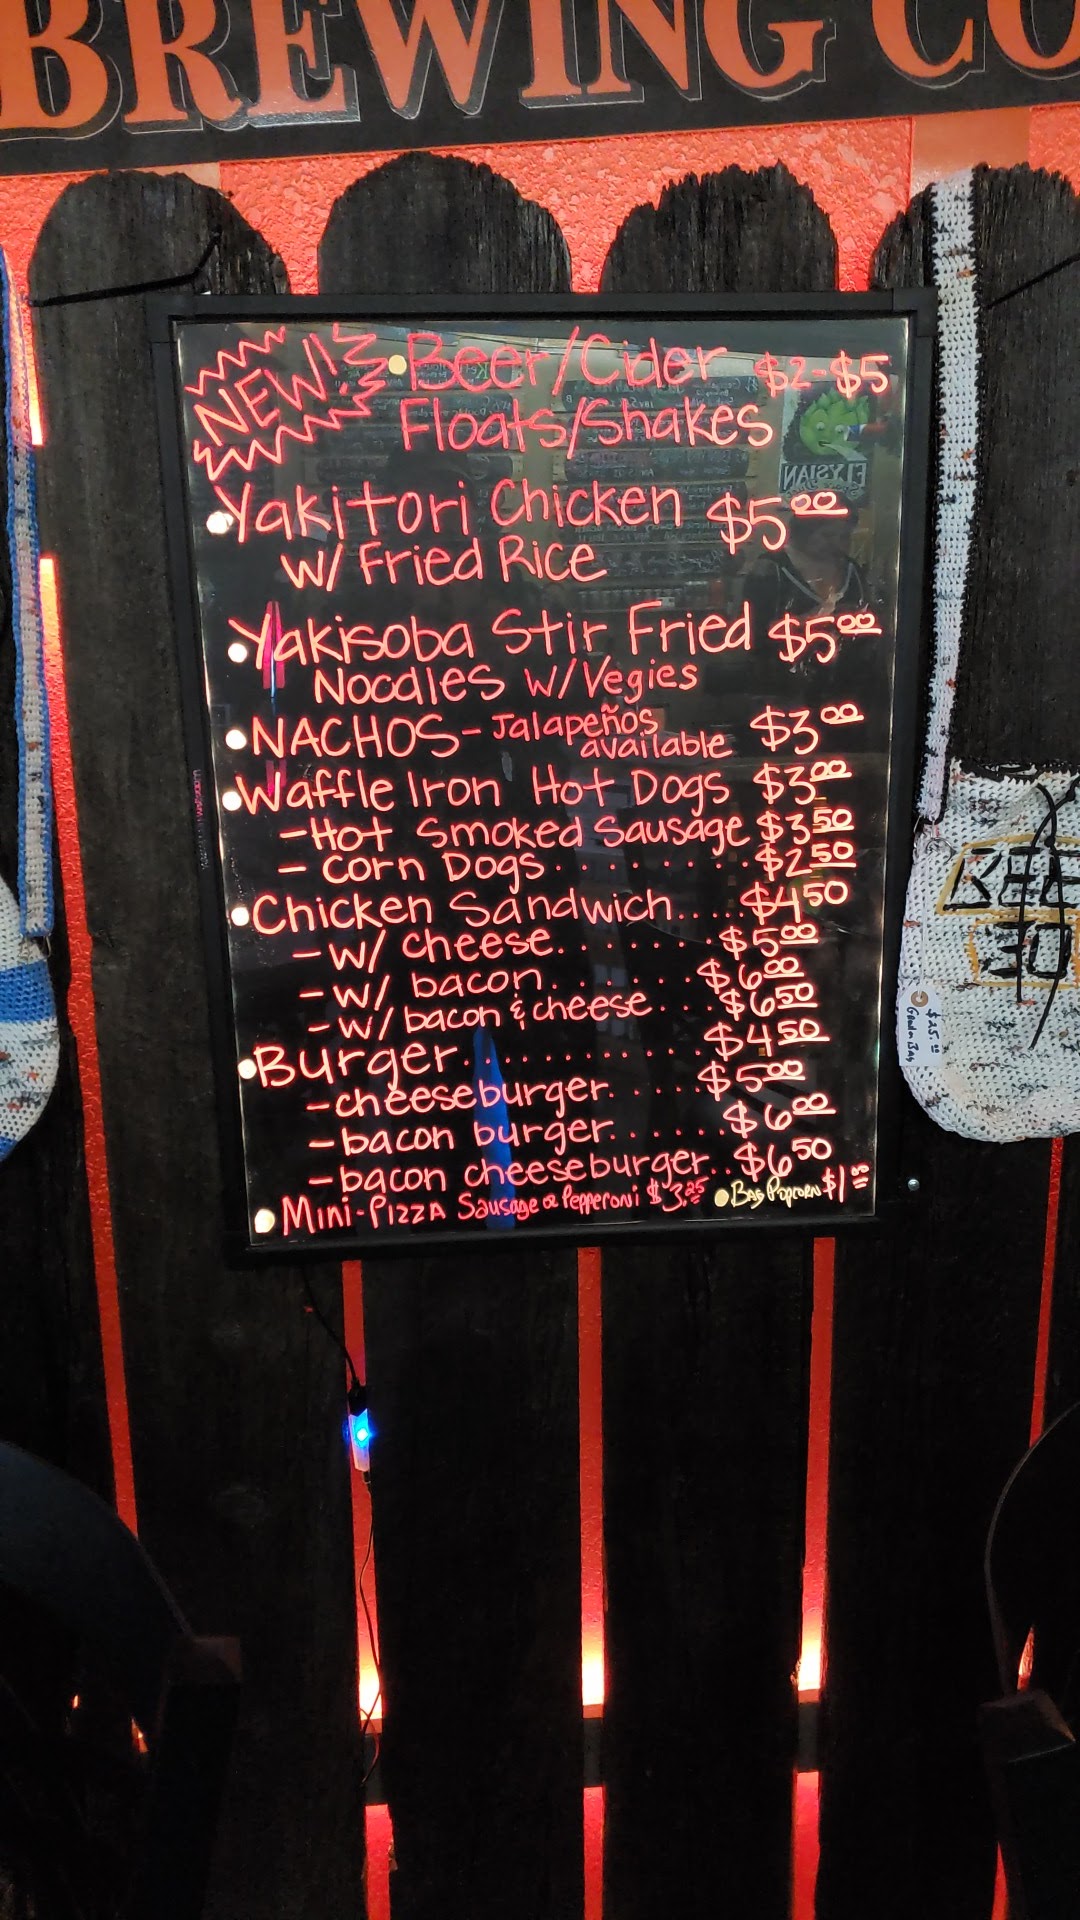 BREWING CO
NEW! • Beer/Cider $2-$5
Floats/Shakes
• Yakitori Chicken $5.00
w/ Fried Rice
• Yakisoba Stir Fried $5.00
Noodles w/Vegies
• NACHOS - Jalapeños $3.00
available
• Waffle Iron Hot Dogs $3.00
- Hot Smoked Sausage $3.50
- Corn Dogs........ $2.50
• Chicken Sandwich..... $4.50
- w/ cheese........ $5.00
- w/ bacon....... $6.00
- w/ bacon & cheese... $6.50
• Burger............. $4.50
- cheeseburger...... $5.00
- bacon burger....... $6.00
- bacon cheeseburger.. $6.50
• Mini-Pizza Sausage or Pepperoni $3.25 • Bag Popcorn $1.00
ELYSIAN
BEE
$25.00